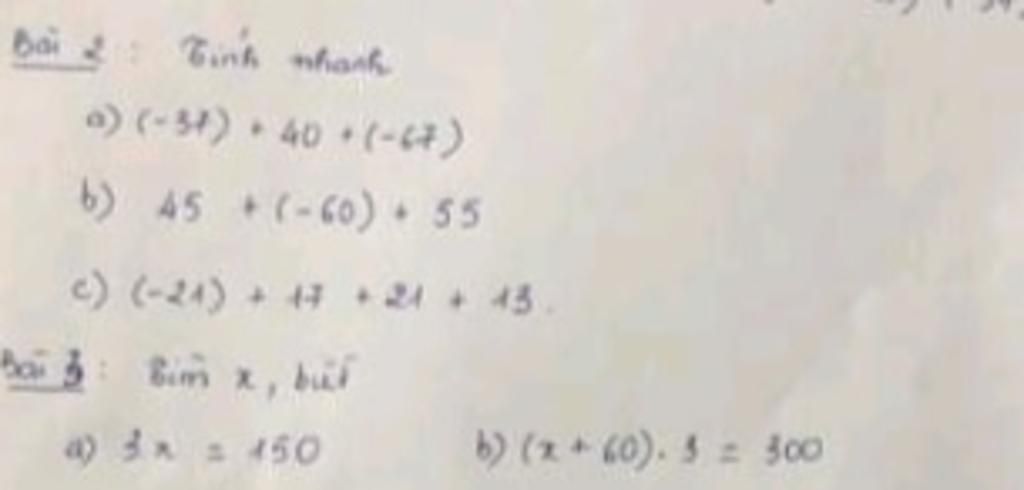 Bài 2 : Tính nhanh
a) (-37) + 40 + (-67)
b) 45 + (-60) + 55
c) (-21) + 17 + 21 + 13.
Bài 3 : Tìm x, biết
a) 3x = 150 b) (x + 60). 3 = 300